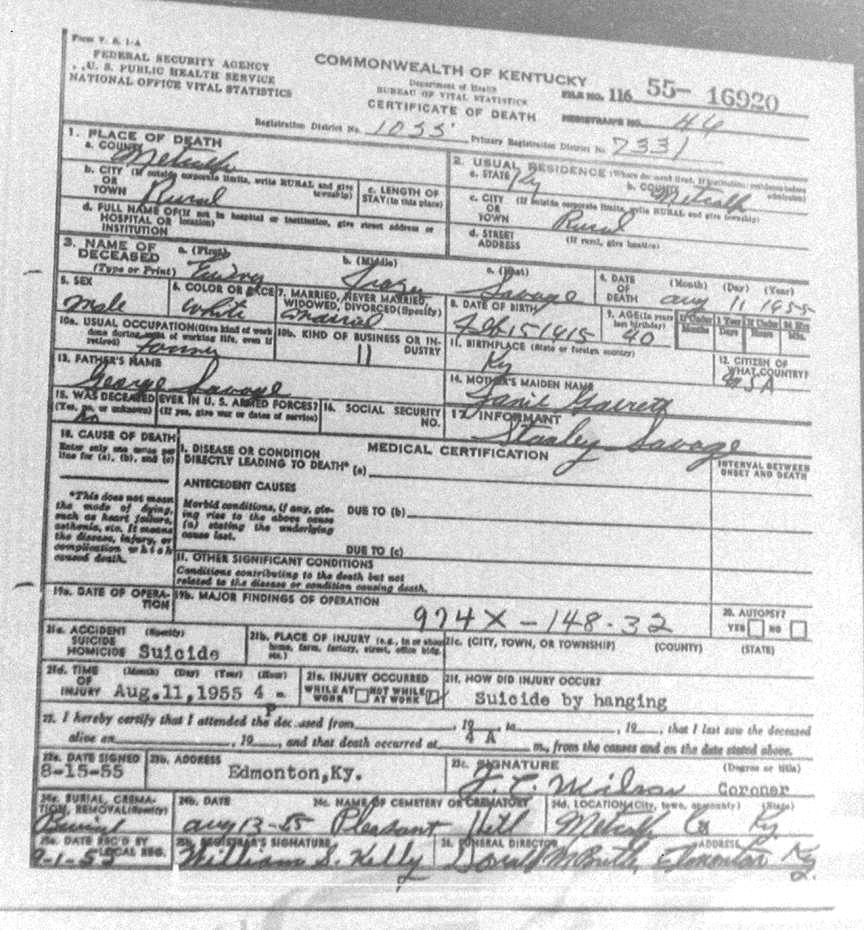 Form V. S. 1-A
FEDERAL SECURITY AGENCY
U. S. PUBLIC HEALTH SERVICE
NATIONAL OFFICE VITAL STATISTICS
COMMONWEALTH OF KENTUCKY
Department of Health
BUREAU OF VITAL STATISTICS
CERTIFICATE OF DEATH
FILE NO. 116 55- 16920
REGISTRAR'S NO. 44
Registration District No. 1055 Primary Registration District No. 7331
1. PLACE OF DEATH
a. COUNTY Metcalfe
b. CITY (If outside corporate limits, write RURAL and give township)
OR
TOWN Rural
c. LENGTH OF STAY (in this place)
d. FULL NAME OF (If not in hospital or institution, give street address or location)
HOSPITAL OR
INSTITUTION
2. USUAL RESIDENCE (Where deceased lived, if institution: residence before admission)
a. STATE Ky b. COUNTY Metcalfe
c. CITY (If outside corporate limits, write RURAL and give township)
OR
TOWN Rural
d. STREET (If rural, give location)
ADDRESS
3. NAME OF DECEASED
(Type or Print)
a. (First)
b. (Middle)
c. (Last) Savage
4. DATE OF DEATH (Month) (Day) (Year)
Aug 11 1955
5. SEX
Male
6. COLOR OR RACE
White
7. MARRIED, NEVER MARRIED, WIDOWED, DIVORCED (Specify)
8. DATE OF BIRTH
Feb 15 1915
9. AGE (In years last birthday)
40
If Under 1 Year Months Days
If Under 24 Hrs Hours Min.
10a. USUAL OCCUPATION (Give kind of work done during most of working life, even if retired)
Farmer
10b. KIND OF BUSINESS OR INDUSTRY
11
11. BIRTHPLACE (State or foreign country)
Ky
12. CITIZEN OF WHAT COUNTRY?
USA
13. FATHER'S NAME
George Savage
14. MOTHER'S MAIDEN NAME
Garrett
15. WAS DECEASED EVER IN U. S. ARMED FORCES?
(Yes, no, or unknown) (If yes, give war or dates of service)
No
16. SOCIAL SECURITY NO.
17. INFORMANT
Stanley Savage
18. CAUSE OF DEATH
Enter only one cause per line for (a), (b), and (c)
*This does not mean the mode of dying, such as heart failure, asthenia, etc. It means the disease, injury, or complication which caused death.
MEDICAL CERTIFICATION
INTERVAL BETWEEN ONSET AND DEATH
I. DISEASE OR CONDITION
DIRECTLY LEADING TO DEATH* (a)
ANTECEDENT CAUSES
Morbid conditions, if any, giving rise to the above cause (a) stating the underlying cause last.
DUE TO (b)
DUE TO (c)
II. OTHER SIGNIFICANT CONDITIONS
Conditions contributing to the death but not related to the disease or condition causing death.
19a. DATE OF OPERATION
19b. MAJOR FINDINGS OF OPERATION
974X - 148-32
20. AUTOPSY?
YES NO
21a. ACCIDENT (Specify)
SUICIDE
HOMICIDE Suicide
21b. PLACE OF INJURY (e.g., in or about home, farm, factory, street, office bldg. etc.)
21c. (CITY, TOWN, OR TOWNSHIP) (COUNTY) (STATE)
21d. TIME (Month) (Day) (Year) (Hour)
OF
INJURY Aug.11,1955 4 P m
21e. INJURY OCCURRED
WHILE AT WORK NOT WHILE AT WORK
21f. HOW DID INJURY OCCUR?
Suicide by hanging
22. I hereby certify that I attended the deceased from , 19 , to , 19 , that I last saw the deceased
alive on , 19 , and that death occurred at 4 A m., from the causes and on the date stated above.
23a. DATE SIGNED
8-15-55
23b. ADDRESS
Edmonton,Ky.
23c. SIGNATURE (Degree or title)
J. C. Wilson Coroner
24a. BURIAL, CREMATION, REMOVAL (Specify)
Burial
24b. DATE
Aug 13-55
24c. NAME OF CEMETERY OR CREMATORY
Pleasant Hill
24d. LOCATION (City, town, or county) (State)
Metcalfe Co Ky
25a. DATE REC'D BY LOCAL REG.
9-1-55
25b. REGISTRAR'S SIGNATURE
William S. Kelly
26. FUNERAL DIRECTOR ADDRESS
Edmonton Ky